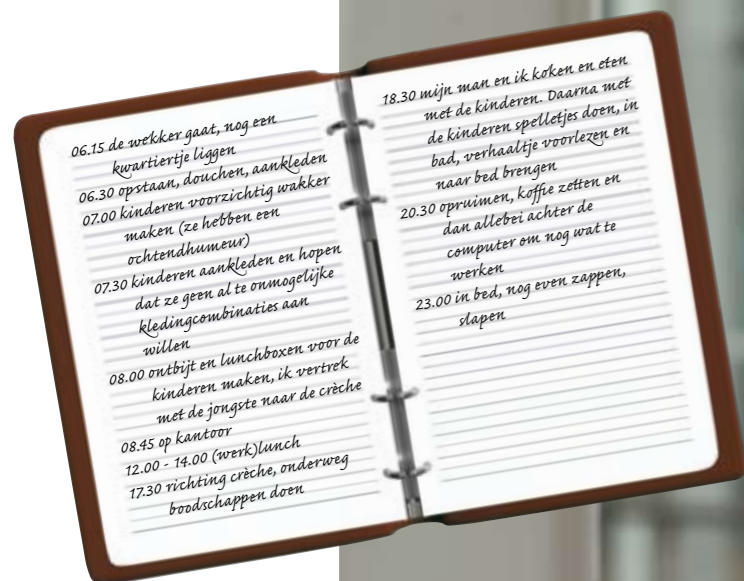 06.15 de wekker gaat, nog een
kwartiertje liggen
06.30 opstaan, douchen, aankleden
07.00 kinderen voorzichtig wakker
maken (ze hebben een
ochtendhumeur)
07.30 kinderen aankleden en hopen
dat ze geen al te onmogelijke
kledingcombinaties aan
willen
08.00 ontbijt en lunchboxen voor de
kinderen maken, ik vertrek
met de jongste naar de crèche
08.45 op kantoor
12.00 - 14.00 (werk)lunch
17.30 richting crèche, onderweg
boodschappen doen
18.30 mijn man en ik koken en eten
met de kinderen. Daarna met
de kinderen spelletjes doen, in
bad, verhaaltje voorlezen en
naar bed brengen
20.30 opruimen, koffie zetten en
dan allebei achter de
computer om nog wat te
werken
23.00 in bed, nog even zappen,
slapen